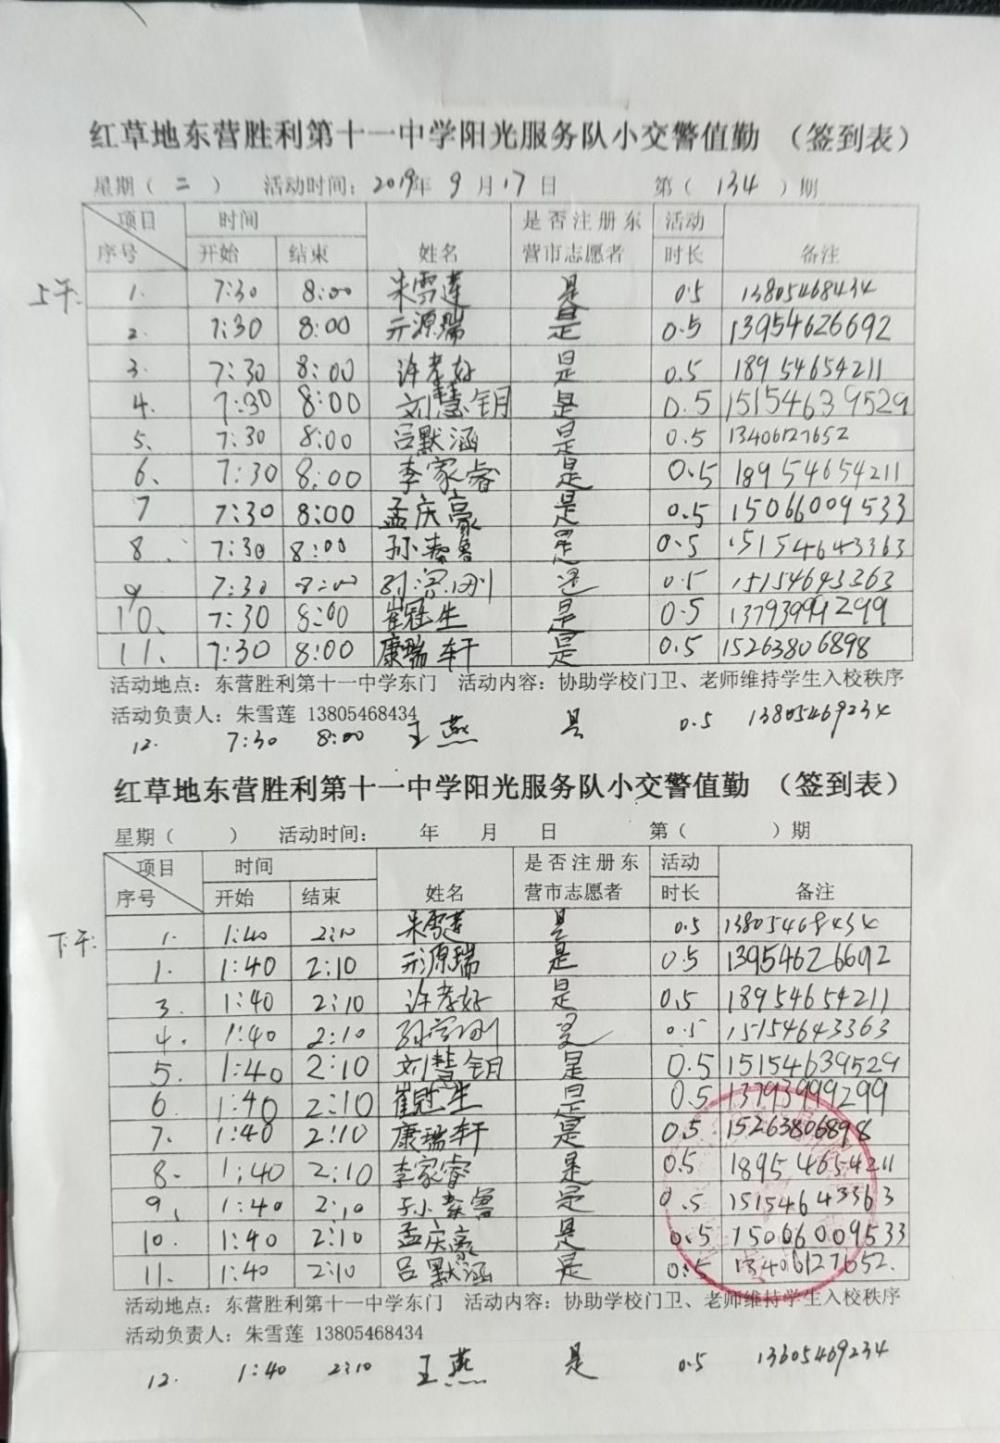 红草地东营胜利第十一中学阳光服务队小交警值勤 （签到表）
星期（ 二 ） 活动时间：2019年 9 月 17 日 第（ 134 ）期
项目 时间 是否注册东 活动
序号 开始 结束 姓名 营市志愿者 时长 备注
上午：
1. 7:30 8:00 朱雪莲 是 0.5 13805468434
2. 7:30 8:00 亓源瑞 是 0.5 13954626692
3. 7:30 8:00 许孝好 是 0.5 18954654211
4. 7:30 8:00 刘慧钥 是 0.5 15154639529
5、 7:30 8:00 吕默涵 是 0.5 13406127652
6、 7:30 8:00 李家睿 是 0.5 18954654211
7 7:30 8:00 孟庆豪 是 0.5 15066009533
8. 7:30 8:00 孙秦鲁 是 0.5 15154643363
9, 7:30 8:00 是 0.5 15154643363
10、 7:30 8:00 崔冠生 是 0.5 13793999299
11、 7:30 8:00 康瑞轩 是 0.5 15263806898
活动地点：东营胜利第十一中学东门 活动内容：协助学校门卫、老师维持学生入校秩序
活动负责人：朱雪莲 13805468434
12. 7:30 8:00 王燕 是 0.5 13805469234
红草地东营胜利第十一中学阳光服务队小交警值勤 （签到表）
星期（ ） 活动时间： 年 月 日 第（ ）期
项目 时间 是否注册东 活动
序号 开始 结束 姓名 营市志愿者 时长 备注
下午：
1. 1:40 2:10 朱雪莲 是 0.5 13805468434
1. 1:40 2:10 亓源瑞 是 0.5 13954626692
3. 1:40 2:10 许孝好 是 0.5 18954654211
4. 1:40 2:10 是 0.5 15154643363
5. 1:40 2:10 刘慧钥 是 0.5 15154639529
6. 1:40 2:10 崔冠生 是 0.5 13793999299
7. 1:40 2:10 康瑞轩 是 0.5 15263806898
8. 1:40 2:10 李家睿 是 0.5 18954654211
9、 1:40 2:10 孙秦鲁 是 0.5 15154643363
10. 1:40 2:10 孟庆豪 是 0.5 15066009533
11. 1:40 2:10 吕默涵 是 0.5 13406127652.
活动地点：东营胜利第十一中学东门 活动内容：协助学校门卫、老师维持学生入校秩序
活动负责人：朱雪莲 13805468434
12. 1:40 2:10 王燕 是 0.5 13605469234